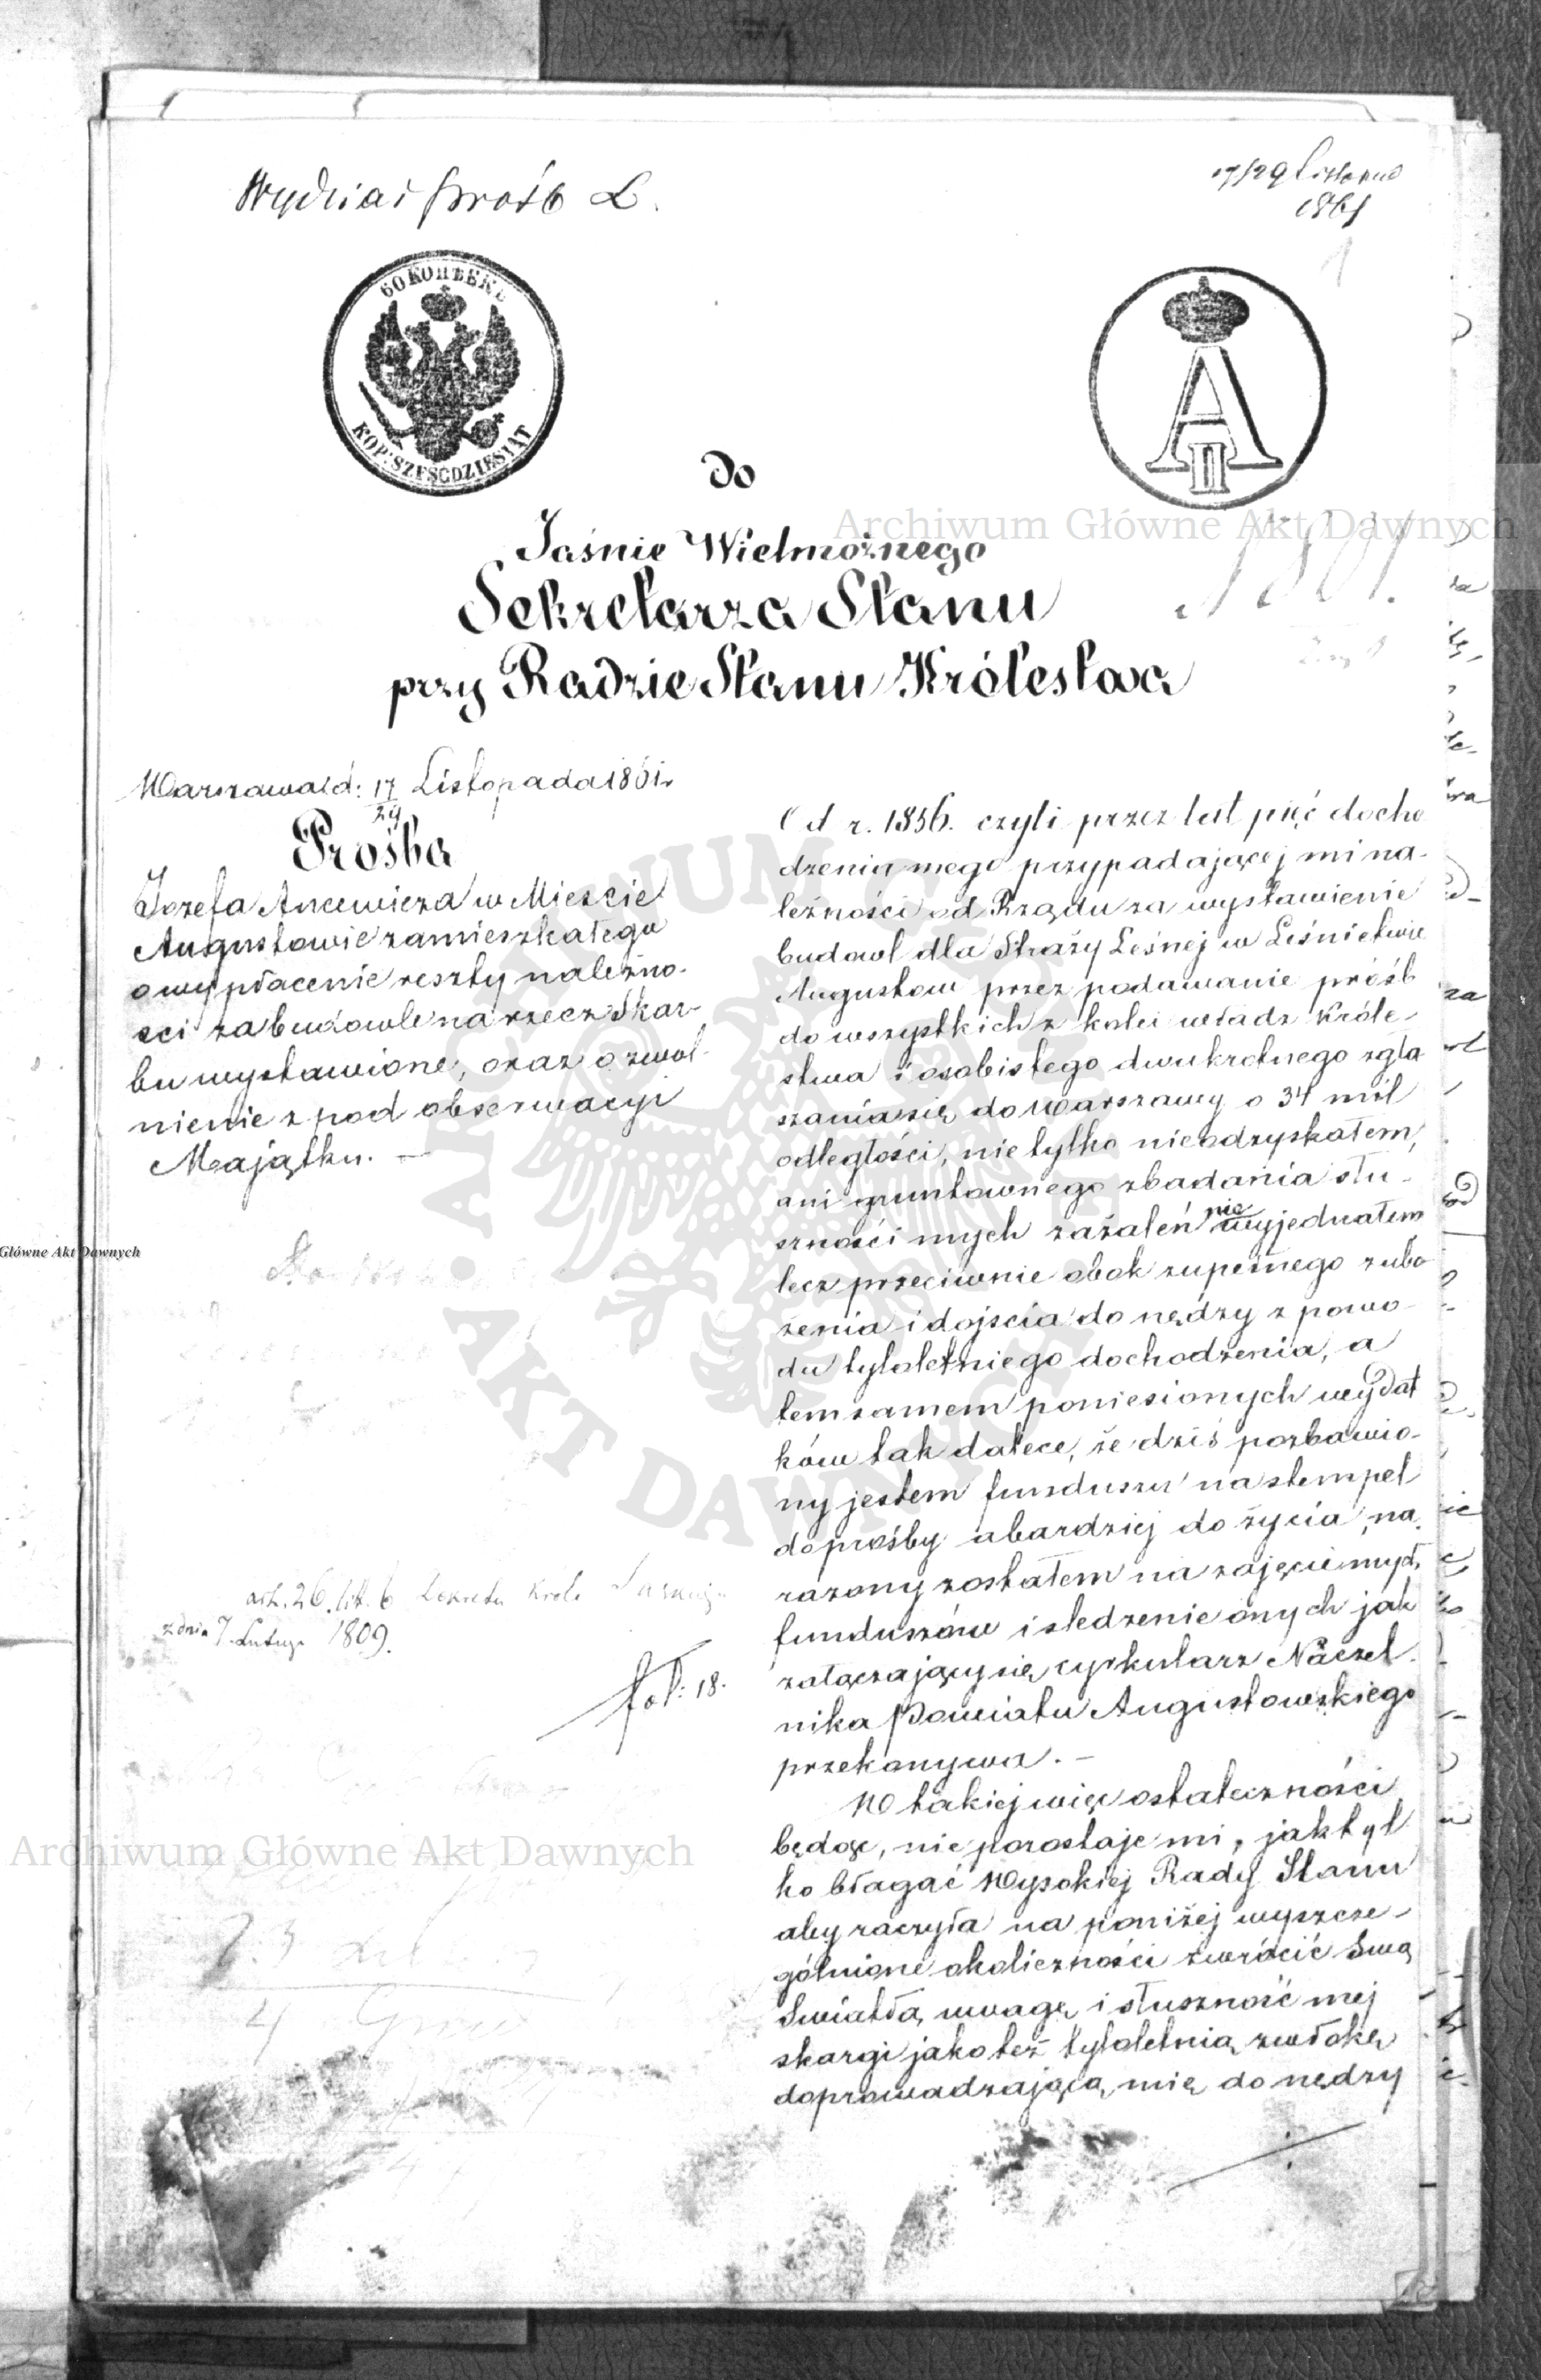 Wydział Próśb L.
17/29 Listopad
1861
1
60 КОПѢЕКЪ
KOP: SZEŚĆDZIESIĄT
A
II
Do
Jaśnie Wielmożnego
Sekretarza Stanu
przy Radzie Stanu Królestwa
1861.
Warszawa d: 17/29 Listopada 1861 r
Prośba
Józefa Ancewicza w Mieście
Augustowie zamieszkałego
o wypłacenie reszty należno-
ści za budowle na rzecz Skar-
bu wystawione, oraz o zwol-
nienie z pod obserwacyi
Majątku. —
art. 26. lit. b Dekretu Króla
z dnia 7. Lutego 1809.
fol: 18.
Od r. 1856. czyli przez lat pięć docho
dzenia mego przypadającej mi na-
leżności od Rządu za wystawienie
budowl dla Straży Leśnej w Leśnictwie
Augustow przez podawanie próśb
do wszystkich z kolei władz Króle-
stwa i osobistego dwukrotnego zgła
szania się do Warszawy o 34 mil
odległości, nie tylko nie odzyskałem,
ani gruntownego zbadania słu-
szności mych zażaleń nie wyjednałem
lecz przeciwnie obok zupełnego zubo
żenia i dojścia do nędzy z powo-
du tyloletniego dochodzenia, a
tem samem poniesionych wydat
ków tak dalece, że dziś pozbawio-
ny jestem funduszu na stempel
do prośby a bardziej do życia, na
rażony zostałem na zajęcie mych
funduszów i śledzenie onych jak
załączający się cyrkularz Naczel-
nika Powiatu Augustowskiego
przekonywa. —
W takiej więc ostateczności
będąc, nie pozostaje mi, jak tyl
ko błagać Wysokiej Rady Stanu
aby raczyła na poniżej wyszcze-
gólnione okoliczności zwrócić Swą
Światłą uwagę i słuszność mej
skargi jako też tyloletnią zwłokę
doprowadzającą mię do nędzy
Archiwum Główne Akt Dawnych
Główne Akt Dawnych
ARCHIWUM GŁÓWNE
AKT DAWNYCH
Archiwum Główne Akt Dawnych